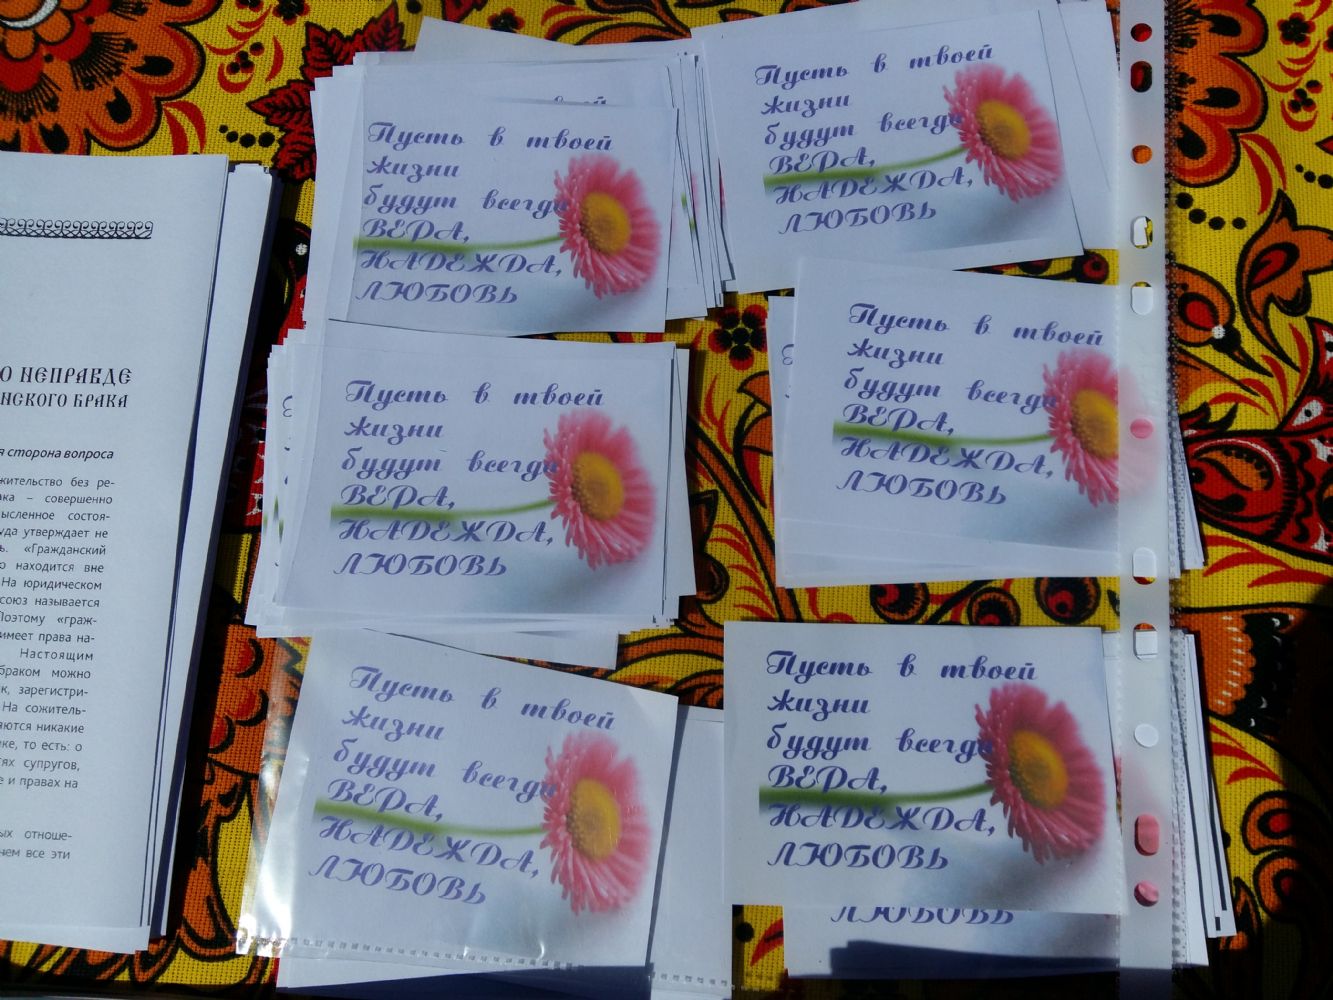 О НЕПРАВДЕ
НСКОГО БРАКА
я сторона вопроса
жительство без ре-
ака – совершенно
мысленное состоя-
уда утверждает не
ь. «Гражданский
о находится вне
На юридическом
союз называется
Поэтому «граж-
имеет права на-
Настоящим
браком можно
к, зарегистри-
На сожитель-
яются никакие
ке, то есть: о
тях супругов,
е и правах на
ых отноше-
чем все эти
Пусть в твоей
жизни
будут всегда
ВЕРА,
НАДЕЖДА,
ЛЮБОВЬ
Пусть в твоей
жизни
будут всегда
ВЕРА,
НАДЕЖДА,
ЛЮБОВЬ
Пусть в твоей
жизни
будут всегда
ВЕРА,
НАДЕЖДА,
ЛЮБОВЬ
Пусть в твоей
жизни
будут всегда
ВЕРА,
НАДЕЖДА,
ЛЮБОВЬ
Пусть в твоей
жизни
будут всегда
ВЕРА,
НАДЕЖДА,
ЛЮБОВЬ
Пусть в твоей
жизни
будут всегда
ВЕРА,
НАДЕЖДА,
ЛЮБОВЬ
ЛЮБОВЬ